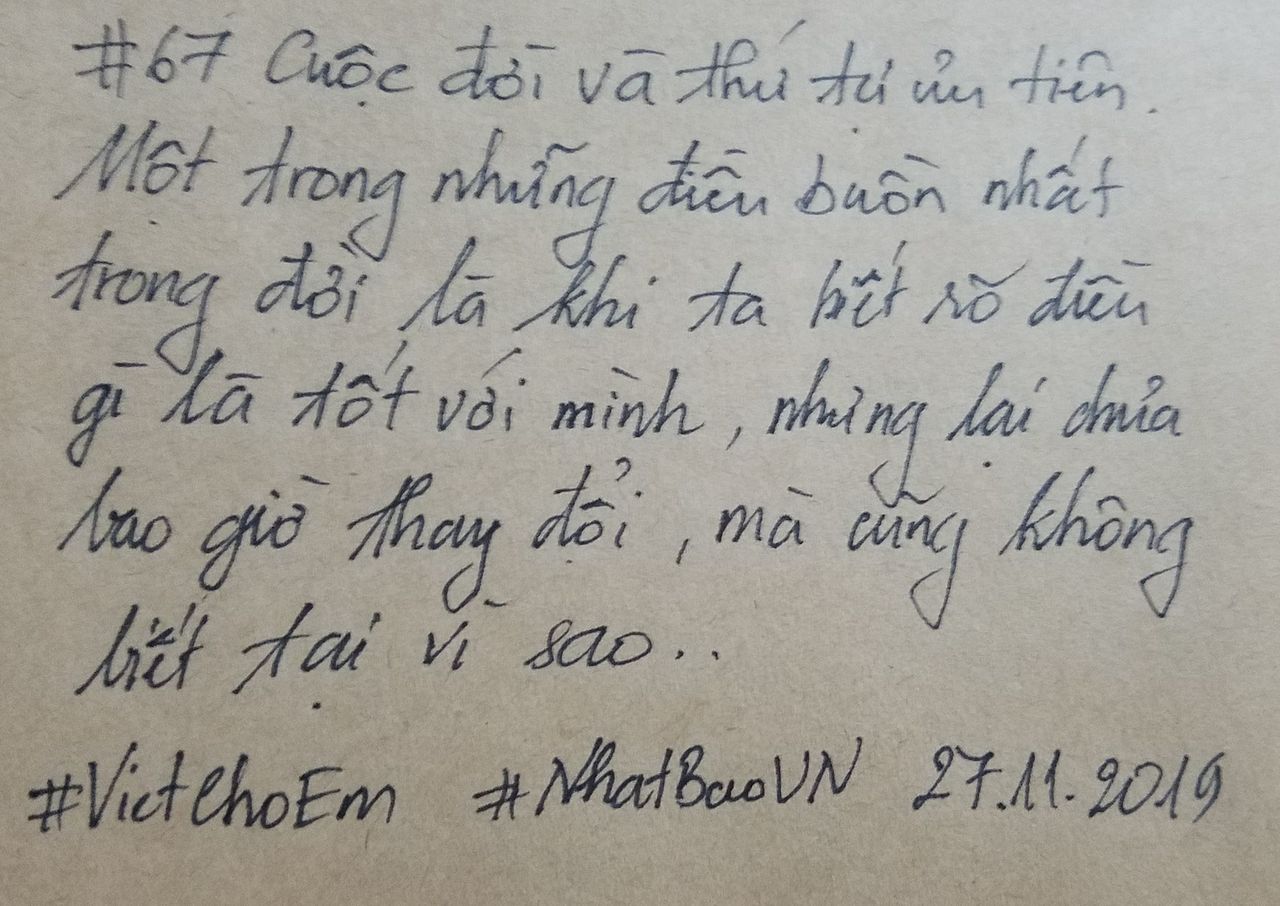 #67 Cuộc đời và thứ tự ưu tiên.
Một trong những điều buồn nhất
trong đời là khi ta biết rõ điều
gì là tốt với mình, nhưng lại chưa
bao giờ thay đổi, mà cũng không
biết tại vì sao..
#VietChoEm #NhatBaoVN 27.11.2019